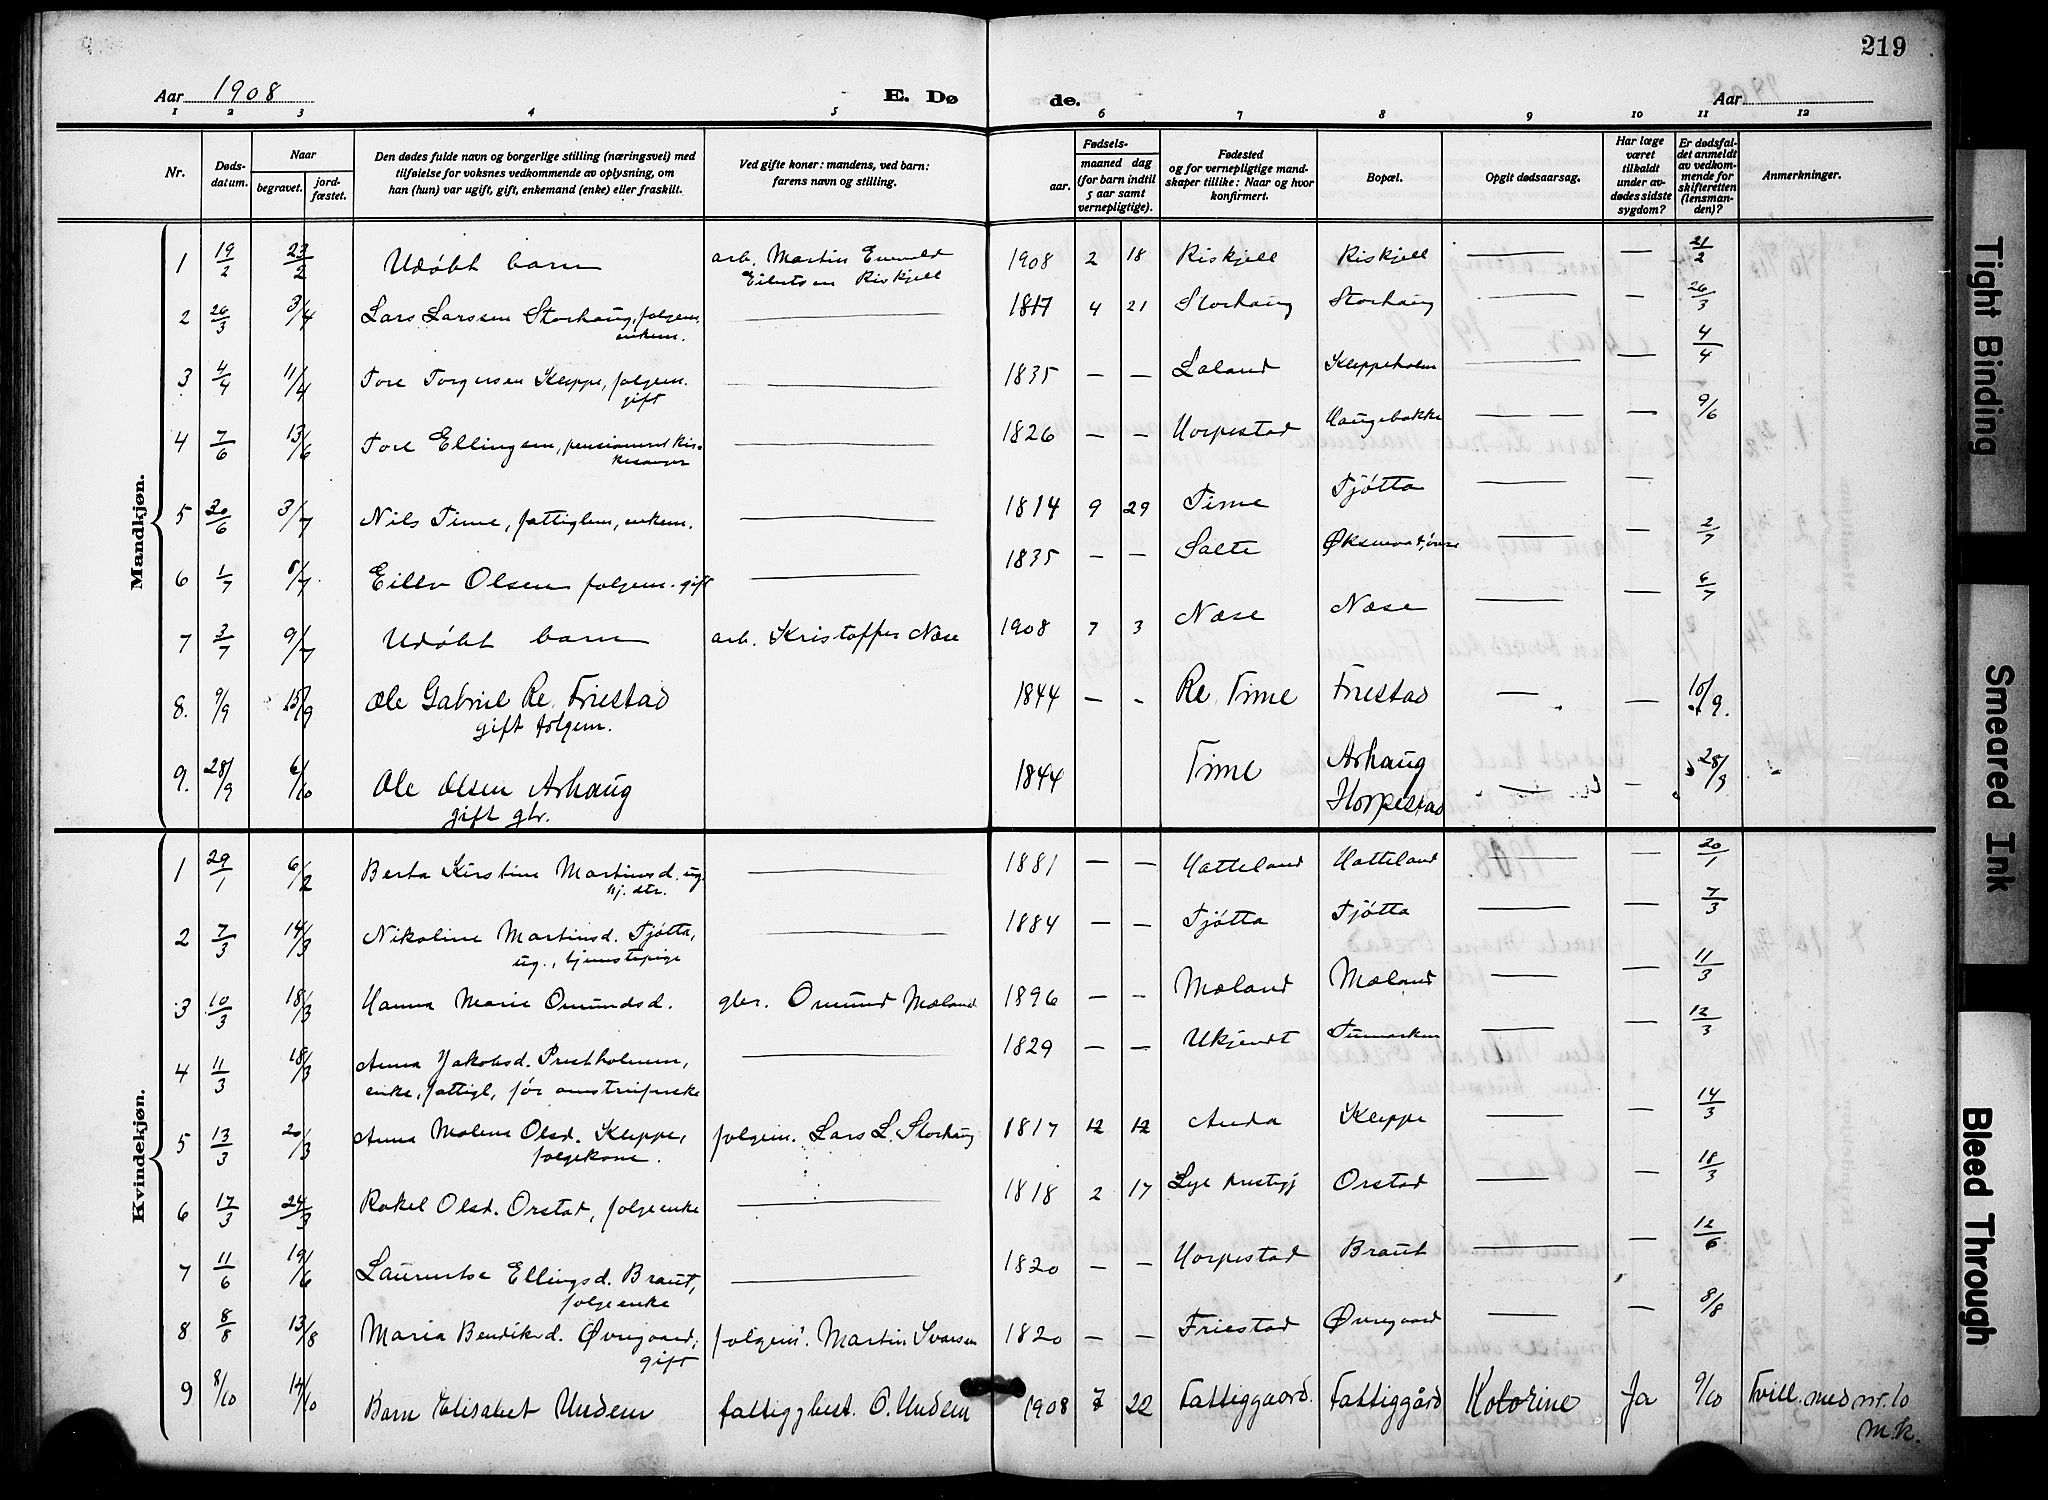 219
Aar 1908
E. Døde.
Aar
1 2 3 4 5 6 7 8 9 10 11 12
Nr.
Døds-
datum.
Naar
begravet.
jord-
fæstet.
Den dødes fulde navn og borgerlige stilling (næringsvei) med
tilføielse for voksnes vedkommende av oplysning, om
han (hun) var ugift, gift, enkemand (enke) eller fraskilt.
Ved gifte koner: mandens, ved barn:
farens navn og stilling.
Fødsels-
aar.
maaned dag
(for barn indtil
5 aar samt
vernepligtige).
Fødested
og for vernepligtige mand-
skaper tillike: Naar og hvor
konfirmert.
Bopæl.
Opgit dødsaarsag.
Har læge
været
tilkaldt
under av-
dødes sidste
sygdom?
Er dødsfal-
det anmeldt
av vedkom-
mende for
skifteretten
(lensman-
den)?
Anmerkninger.
Mandkjøn.
1 19/2 23/2 Udøbt barn arb. Martin Enevald 1908 2 18 Riskjell Riskjell — — 21/2
Eilertsen Riskjell
2 26/3 3/4 Lars Larssen Storhaug, folgem. — 1817 4 21 Storhaug Storhaug — — 26/3
enkem.
3 4/4 11/4 Tore Torgersen Kleppe, folgem. — 1835 — — Laland Kleppeholen — — 4/4
gift
4 7/6 13/6 Tore Ellingsen, pensioneret kir- — 1826 — — Horpestad Haugebakke — — 9/6
kesanger
5 30/6 3/7 Nils Time, fattiglem, enkem. — 1814 9 29 Time Tjøtta — —
6 1/7 8/7 Eiller Olsen folgem. gift — 1835 — — Salte — — 2/7
7 3/7 9/7 Udøbt barn arb. Kristoffer Næse 1908 7 3 Næse Næse — — 6/7
8. 9/9 15/9 Ole Gabriel Re. Friestad 1844 — - Re. Time Friestad — — 10/9.
gift folgem.
9. 28/9 6/10 Ole Olsen Arhaug 1844 Time Arhaug — — 28/9
gift gbr. Horpestad
Kvindekjøn.
1 29/1 6/2 Berta Kirstine Martinsd. ug. — 1881 — — Hatteland Hatteland — — 20/1
hj. dtr.
2 7/3 14/3 Nikoline Martinsd. Tjøtta, — 1884 — — Tjøtta Tjøtta — — 7/3
ug., tjenestepige
3 10/3 18/3 Hanna Marie Omundsd. gbr. Omund Mæland 1896 — — Mæland Mæland — — 11/3
4 11/3 18/3 Anna Jakobsd. Prestholmen, — 1829 — — Ukjendt — — 12/3
enke, fattigl,
5 13/3 20/3 Anna Malene Olsd. Kleppe, folgem. Lars L. Storhaug 1817 12 12 Anda Kleppe — — 14/3
folgekone.
6 17/3 24/3 Rakel Olsd. Orstad, folgeenke — 1818 2 17 Lye prestegj Orstad — — 18/3
7 11/6 19/6 Laurentse Ellingsd. Braut, — 1820 — — Horpestad Braut — — 12/6
folgeenke
8 8/8 13/8 Maria Bendiksd. Øvregaard, folgem. Martin Ivarsen 1820 — — Friestad Øvregaard — — 8/8
gift
9 8/10 14/10 Barn Elisabet Undem fattiggbest. O. Undem 1908 7 22 Fattiggaard. Fattiggård Kolorine Ja 9/10 Tvill. med nr. 10
M.k.
Tight Binding
Smeared Ink
Bleed Through